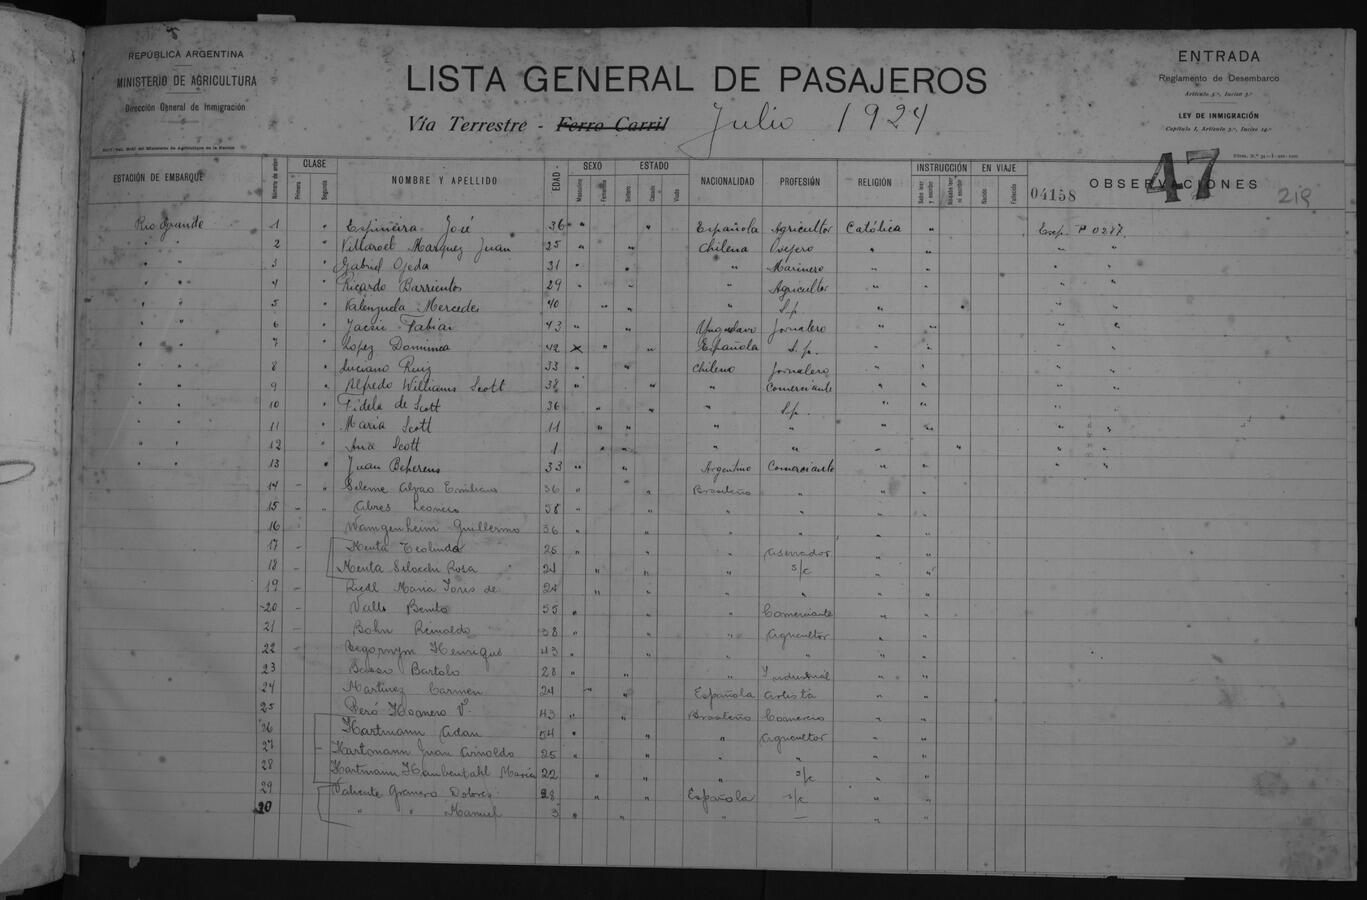 REPÚBLICA ARGENTINA
MINISTERIO DE AGRICULTURA
Dirección General de Inmigración
LISTA GENERAL DE PASAJEROS
Vía Terrestre - Ferro Carril Julio 1924
ENTRADA
Reglamento de Desembarco
Artículo 5º, Inciso 3º
LEY DE INMIGRACIÓN
Capítulo I, Artículo 3º, Inciso 14º
47
ESTACIÓN DE EMBARQUE Número de orden CLASE Primera Segunda NOMBRE Y APELLIDO EDAD SEXO Masculino Femenino ESTADO Soltero Casado Viudo NACIONALIDAD PROFESIÓN RELIGIÓN INSTRUCCIÓN Sabe leer y escribir EN VIAJE Nacido Fallecido 04158 OBSERVACIONES 219
Rio Grande 1 " Espiñeira José 36 " " Española Agricultor Católica " Exep. P 0287.
" " 2 " Villaroel Marquez Juan 25 " " Chilena Ovejero " " " "
" " 3 " Gabriel Ojeda 31 " " " Marinero " " " "
" " 4 " Ricardo Barrientos 29 " " " Agricultor " " " "
" " 5 " Valenzuela Mercedes 40 " " " S.p. " " " "
" " 6 " Fabian 43 " " Jornalero " " " "
" " 7 " Lopez 42 x " " Española S.p. " " " "
" " 8 " Luciano Ruiz 33 " " Chileno Jornalero " " " "
" " 9 " Alfredo Williams Scott 38 " " " Comerciante " " " "
" " 10 " Fidela de Scott 36 " " " S.p. " " " "
" " 11 " Maria Scott 11 " " " " " " " "
" " 12 " Ana Scott 1 " " " " " " " "
" " 13 " Juan 33 " " Argentino Comerciante " " " "
14 - " Emiliano 36 " " Brasileño " " "
15 - " Leoncio 38 " " " " " "
16 Wamgenheim Guillermo 36 " " " " " "
17 - Menta Teolinda 25 " " " Aserrador " "
18 - Menta Rosa 24 " " " s/c " "
19 - Riedl Maria de 24 " " " " " "
20 - Valls Benito 35 " " " Comerciante " "
21 - Bohn Reinaldo 38 " " " Agricultor " "
22 - Henrique 43 " " " " " "
23 Bartolo 28 " " " Industrial " "
24 Martinez Carmen 24 " " Española Artista " "
25 Homero V. 43 " " Brasileño Comercio " "
26 Hartmann Adan 54 " " " Agricultor " "
27 - Hartmann Juan Arnoldo 25 " " " " " "
28 Hartmann Maria 22 " " " s/c " "
29 Valiente Granero Dolores 28 " " Española s/c " "
30 " " Manuel 3 " " " — " "